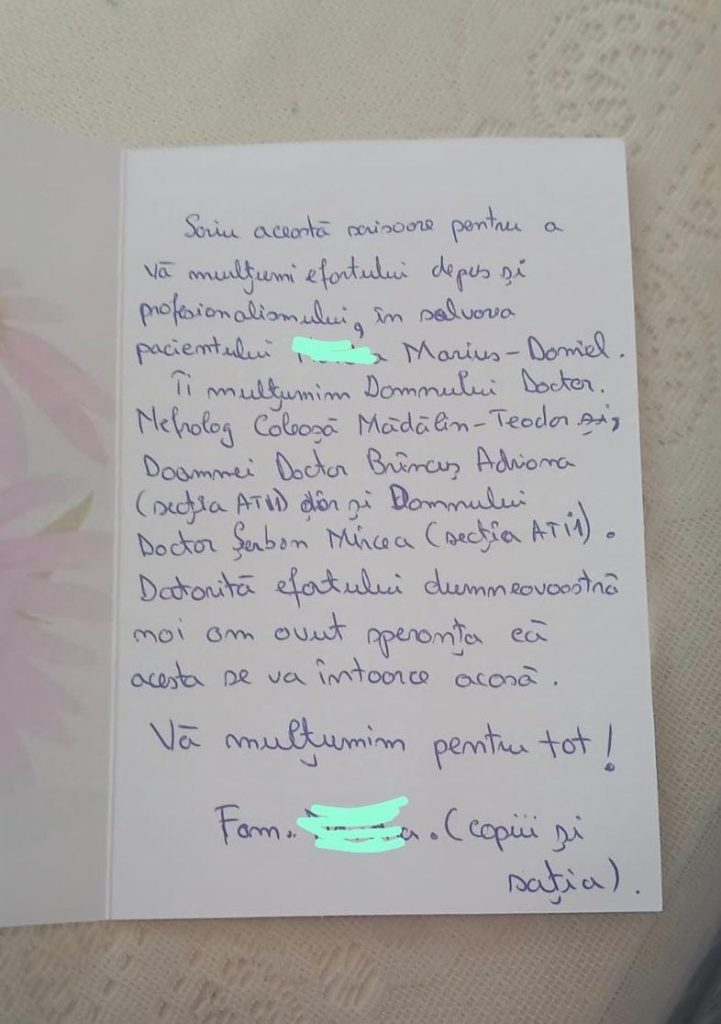 Scriu această scrisoare pentru a
vă mulțumi efortului depus și
profesionalismului, în salvarea
pacientului Marius-Daniel.
Îi mulțumim Domnului Doctor
Nefrolog Coloșă Mădălin-Teodor și,
Doamnei Doctor Brîncuș Adriana
(secția ATI1) dar și Domnului
Doctor Șerban Mircea (secția ATI1).
Datorită efortului dumneavoastră
noi am avut speranța că
acesta se va întoarce acasă.
Vă mulțumim pentru tot!
Fam. (copiii și
sația).